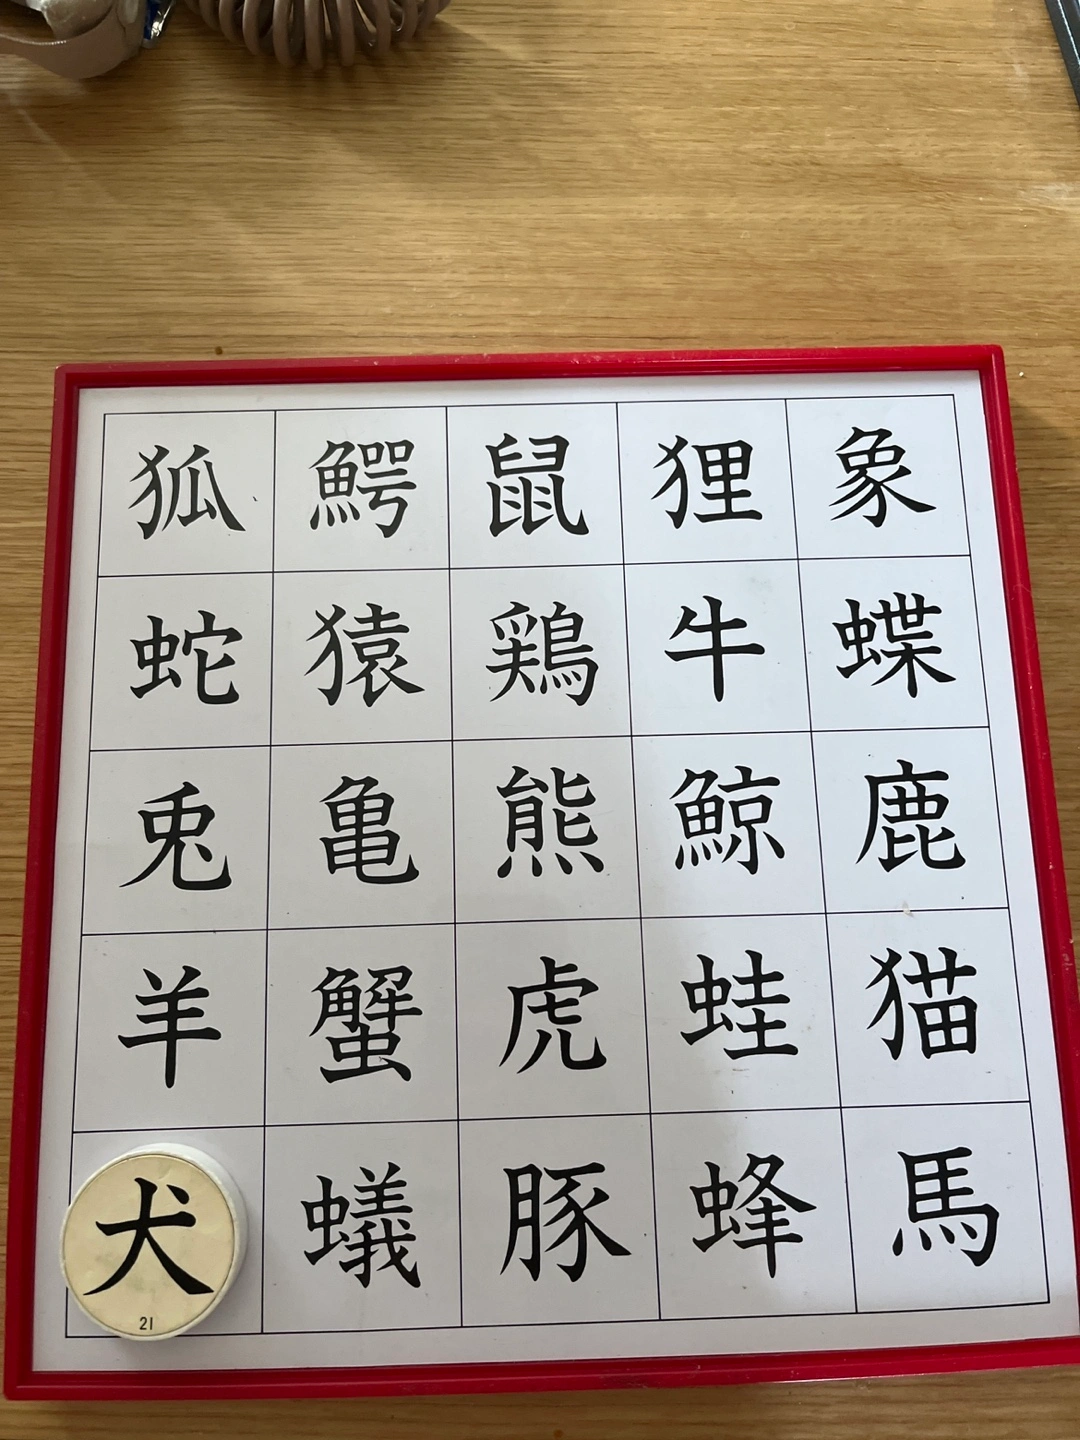 狐 鰐 鼠 狸 象
蛇 猿 鶏 牛 蝶
兎 亀 熊 鯨 鹿
羊 蟹 虎 蛙 猫
犬 蟻 豚 蜂 馬
21